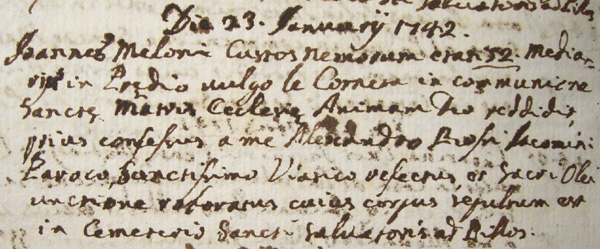 Die 23. Januarij 1742.
Joannes Meloni Custos nemorum etat: 52. median:
in Predio vulgo le Corneta in communione
Sancte Matris Ecclesie Animam Deo reddidit,
prius confessus a me Alexandro Jacomini
Paroco, Sanctissimo Viatico refectus et Sacri Olei
unctione roboratus cuius corpus sepultum est
in Cemeterio Sancti Salvatoris ad